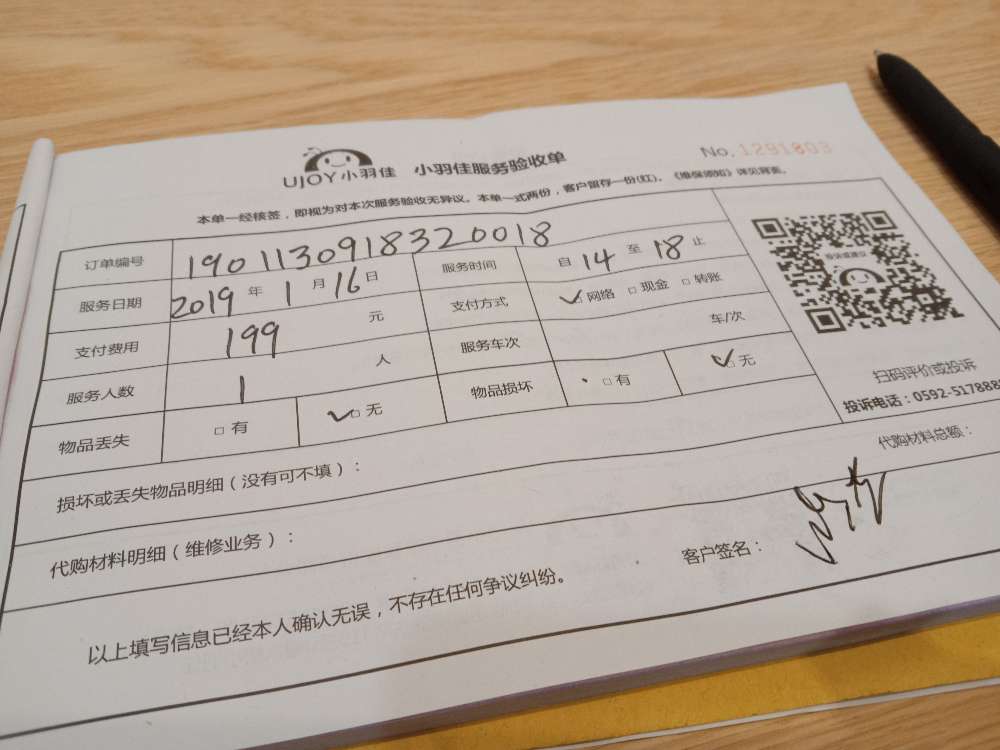 UJOY小羽佳 小羽佳服务验收单 No. 1291803
本单一经核签，即视为对本次服务验收无异议。本单一式两份，客户留存一份(红)。《维保须知》详见背面。
订单编号 1901130918320018
服务日期 2019 年 1 月 16 日 服务时间 自 14 至 18 止
支付费用 199 元 支付方式 ✓□网络 □现金 □转账
服务人数 1 人 服务车次 车/次
物品丢失 □有 ✓□无 物品损坏 □有 ✓□无
投诉或建议
扫码评价或投诉
投诉电话：0592-517888
损坏或丢失物品明细（没有可不填）：
代购材料明细（维修业务）： 代购材料总额：
以上填写信息已经本人确认无误，不存在任何争议纠纷。 客户签名：